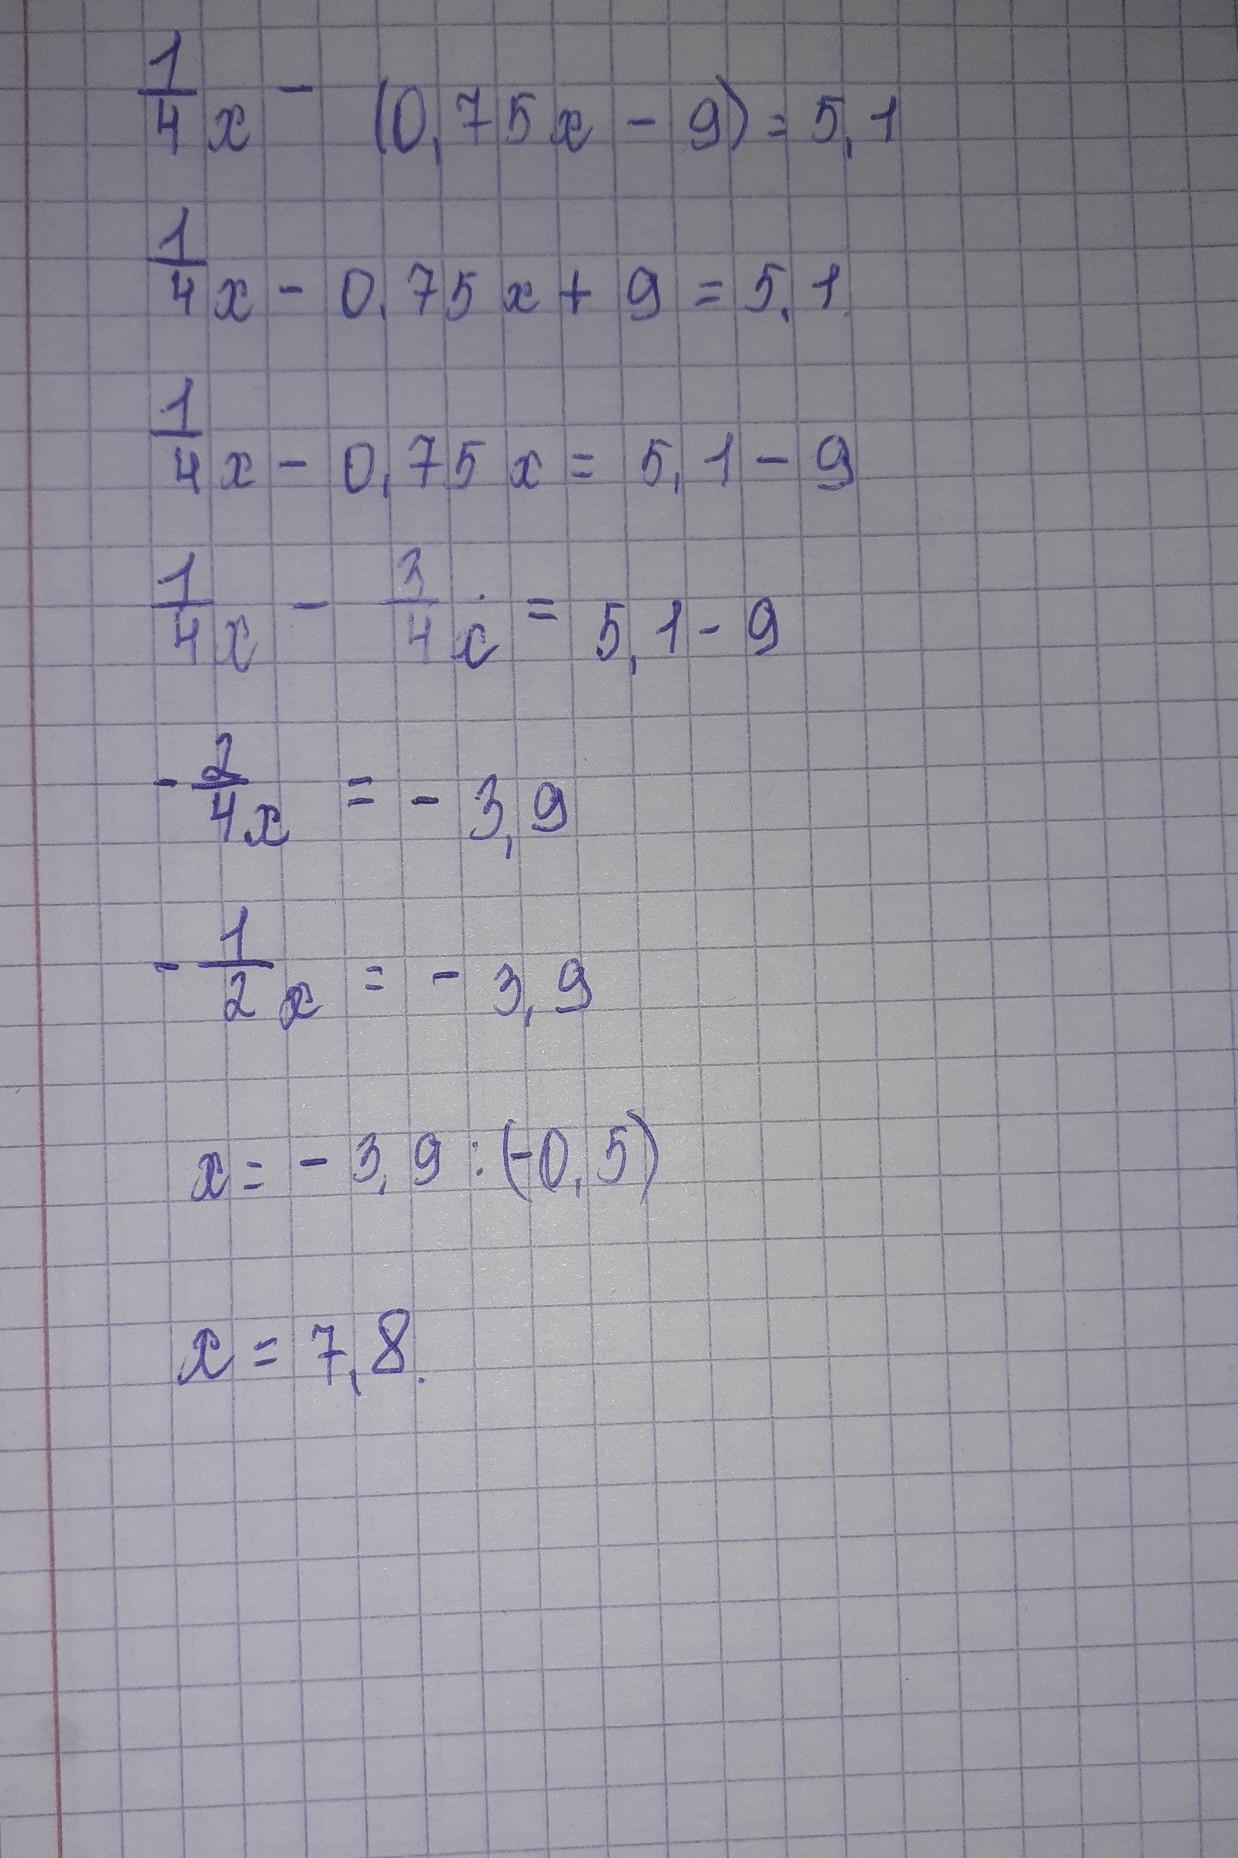 1/4 x - (0,75x - 9) = 5,1
1/4 x - 0,75x + 9 = 5,1
1/4 x - 0,75x = 5,1 - 9
1/4 x - 3/4 x = 5,1 - 9
- 2/4 x = - 3,9
- 1/2 x = - 3,9
x = - 3,9 : (-0,5)
x = 7,8.